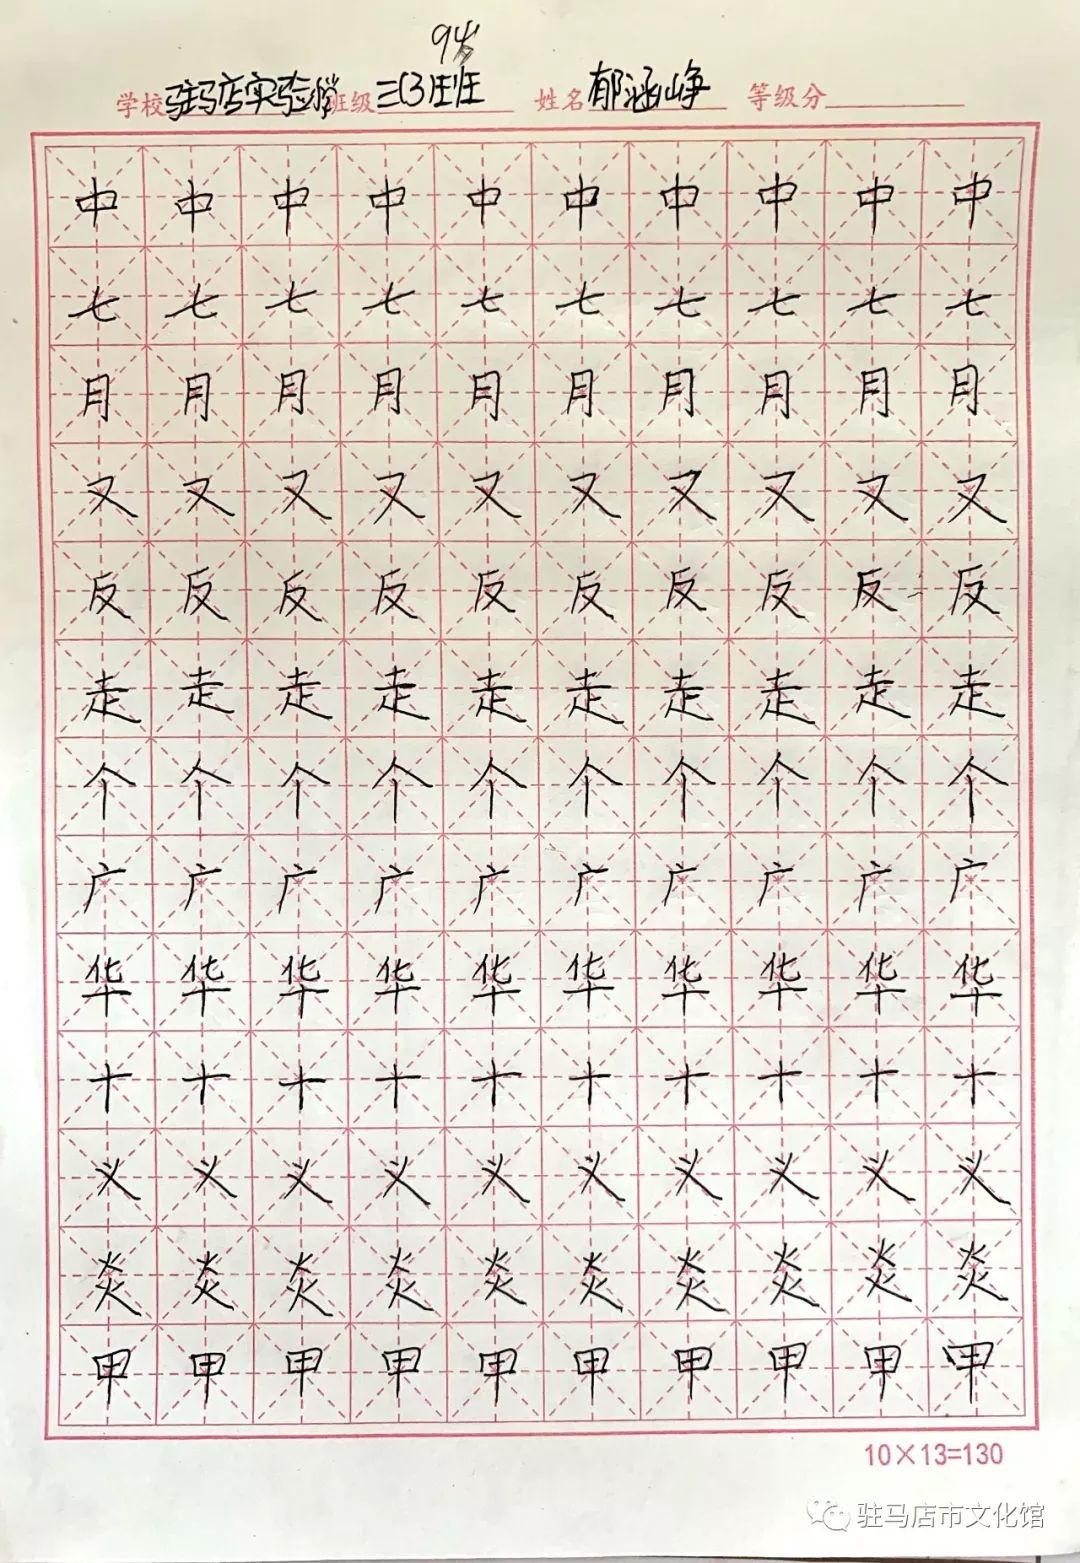 9岁
学校驻马店实验小学班级三(3)班 姓名郁涵峥 等级分
中中中中中中中中中中
七七七七七七七七七七
月月月月月月月月月月
又又又又又又又又又又
反反反反反反反反反反
走走走走走走走走走走
个个个个个个个个个个
广广广广广广广广广广
华华华华华华华华华华
十十十十十十十十十十
义义义义义义义义义义
炎炎炎炎炎炎炎炎炎炎
甲甲甲甲甲甲甲甲甲甲
10×13=130
驻马店市文化馆